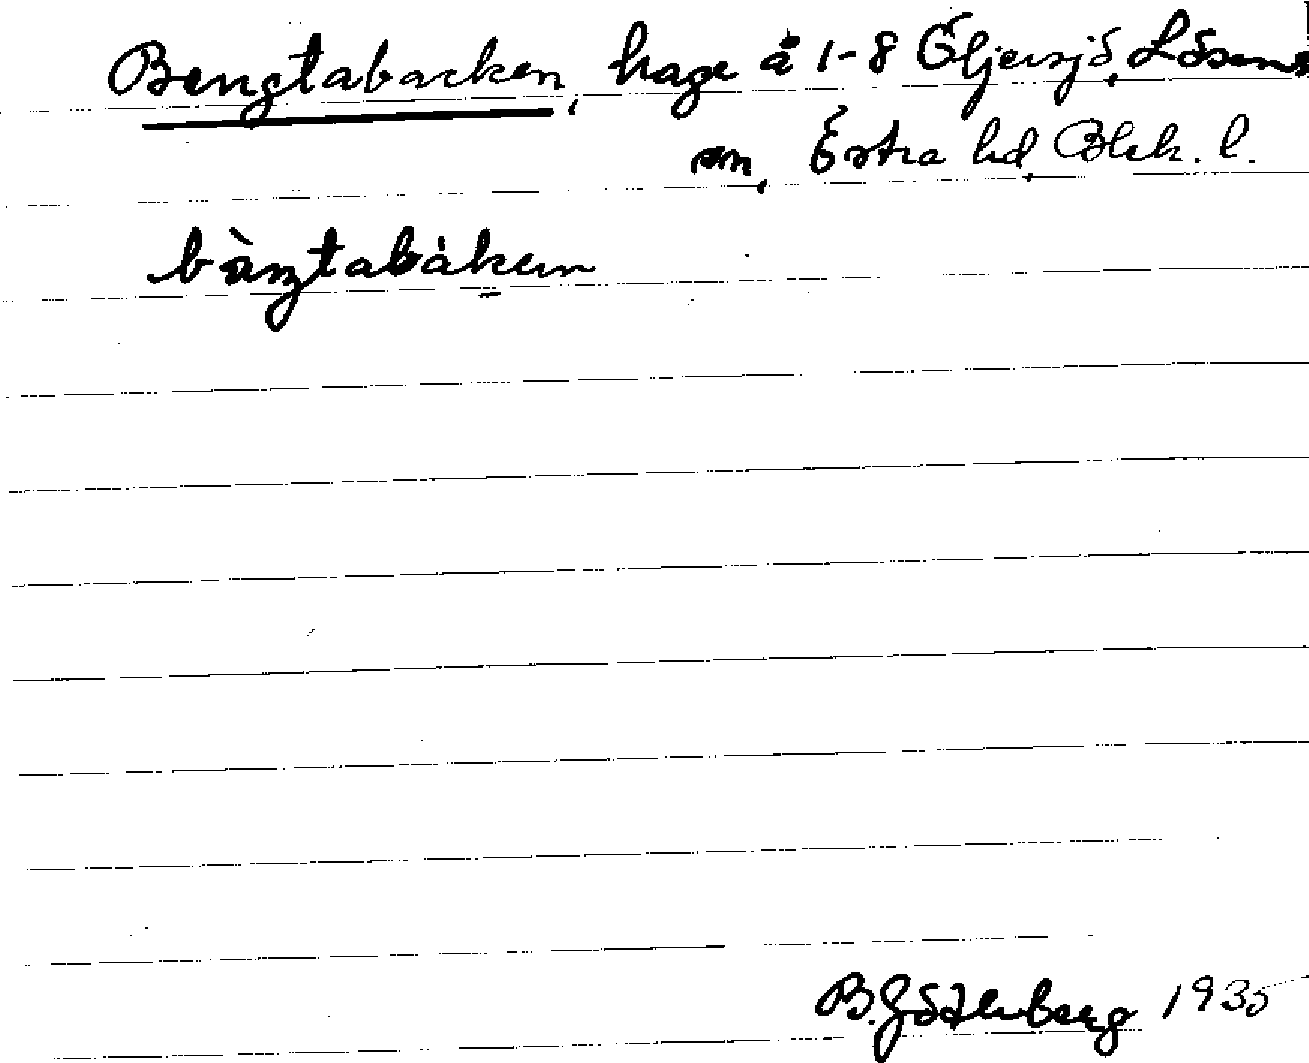 Bengtabacken, hage å 1-8 Öljersjö, Lösens
sn, Östra hd, Blek. l.
bàŋtabáken
B. Götlenberg 1935